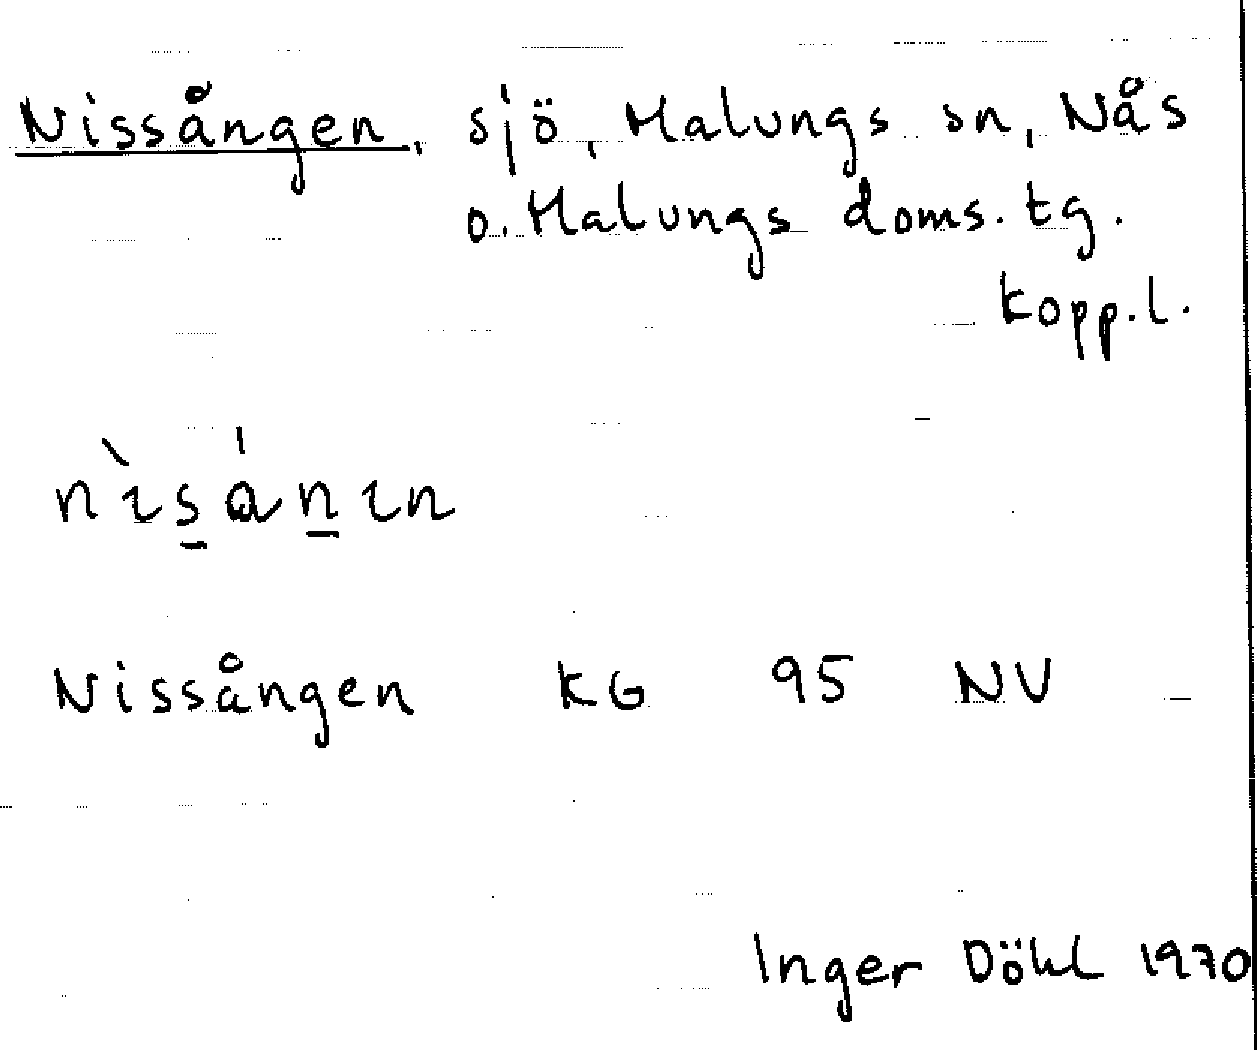 Nissången, sjö, Malungs sn, Nås
o. Malungs doms. tg.
Kopp.l.
nı̀s̲ án̲ın
Nissången KG 95 NV
Inger Döhl 1970